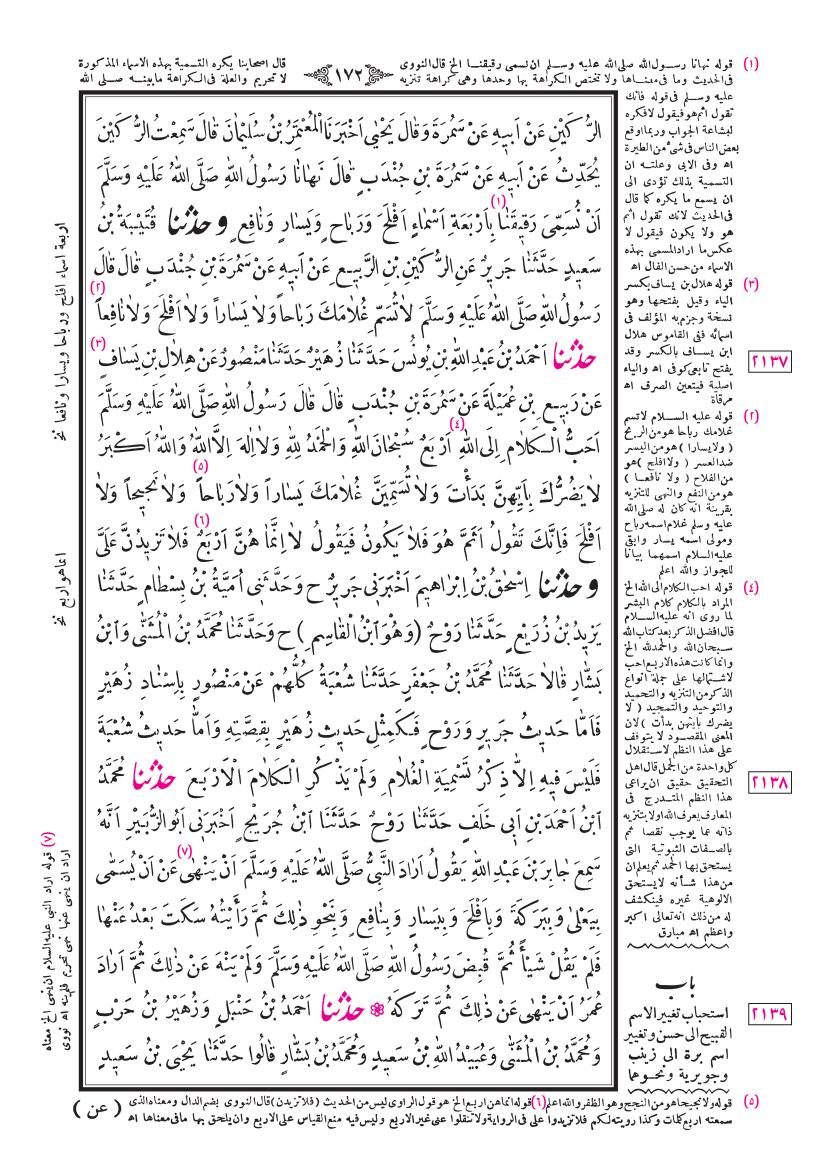 (١) قوله نهانا رسول الله صلى الله عليه وسلم ان نسمى رقيقنا الخ قال النووى
قال اصحابنا يكره التسمية بهذه الاسماء المذكورة
﴿١٧٢﴾
فى الحديث وما فى معناها ولا تختص الكراهة بها وحدها وهى كراهة تنزيه
لا تحريم والعلة فى الكراهة ما بينه صلى الله
عليه وسلم فى قوله فانك
تقول اثم هو فيقول لا فكره
لبشاعة الجواب وربما اوقع
بعض الناس فى شئ من الطيرة
اه وفى الابى وعلته ان
التسمية بذلك تؤدى الى
ان يسمع ما يكره كما قال
فى الحديث لانك تقول اثم
هو ولا يكون فيقول لا
عكس ما اراد المسمى بهذه
الاسماء من حسن الفال اه
(٣) قوله هلال بن يساف بكسر
الياء وقيل بفتحها وهو
نسخة وجزم به المؤلف فى
اسمائه ففى القاموس هلال
ابن يساف بالكسر وقد
يفتح تابعى كوفى اه والياء
اصلية فيتعين الصرف اه
مرقاة
(٢) قوله عليه السلام لا تسم
غلامك رباحا هو من الربح
(ولا يسارا) هو من اليسر
ضد العسر (ولا افلح) هو
من الفلاح (ولا نافعا)
هو من النفع والنهى للتنزيه
بقرينة انه كان له صلى الله
عليه وسلم غلام اسمه رباح
ومولى اسمه يسار وابقى
عليه السلام اسمهما بيانا
للجواز والله اعلم
(٤) قوله احب الكلام الى الله الخ
المراد بالكلام كلام البشر
لما روى انه عليه السلام
قال افضل الذكر بعد كتاب الله
سبحان الله والحمد لله الخ
وانما كانت هذه الاربع احب
لاشتمالها على جملة انواع
الذكر من التنزيه والتحميد
والتوحيد والتمجيد (لا
يضرك بايتهن بدأت) لان
المعنى المقصود لا يتوقف
على هذا النظم لاستقلال
كل واحدة من الجمل قال اهل
التحقيق حقيق ان يراعى
هذا النظم المتدرج فى
المعارف يعرف الله اولا بتنزيه
ذاته عما يوجب نقصا ثم
بالصفات الثبوتية التى
يستحق بها الحمد ثم يعلم ان
من هذا شأنه لا يستحق
الالوهية غيره فينكشف
له من ذلك انه تعالى اكبر
واعظم اه مبارق
باب
استحباب تغيير الاسم
القبيح الى حسن وتغيير
اسم برة الى زينب
وجويرية ونحوهما
٢١٣٧
٢١٣٨
٢١٣٩
الرُّكَيْنِ عَنْ اَبيهِ عَنْ سَمُرَةَ وَقَالَ يَحْيٰى اَخْبَرَنَا الْمُعْتَمِرُ بْنُ سُلَيْمَانَ قَالَ سَمِعْتُ الرُّكَيْنَ
يُحَدِّثُ عَنْ اَبيهِ عَنْ سَمُرَةَ بْنِ جُنْدَبٍ قَالَ نَهَانَا رَسُولُ اللهِ صَلَّى اللهُ عَلَيْهِ وَسَلَّمَ
اَنْ نُسَمِّىَ رَقيقَنَا(١) بِاَرْبَعَةِ اَسْمَاءٍ اَفْلَحَ وَرَبَاحٍ وَيَسَارٍ وَنَافِعٍ وَحَدَّثَنَا قُتَيْبَةُ بْنُ
سَعيدٍ حَدَّثَنَا جَريرٌ عَنِ الرُّكَيْنِ بْنِ الرَّبيعِ عَنْ اَبيهِ عَنْ سَمُرَةَ بْنِ جُنْدَبٍ قَالَ قَالَ
رَسُولُ اللهِ صَلَّى اللهُ عَلَيْهِ وَسَلَّمَ لَا تُسَمِّ غُلَامَكَ رَبَاحاً وَلَا يَسَاراً وَلَا اَفْلَحَ وَلَا نَافِعاً(٢)
حَدَّثَنَا اَحْمَدُ بْنُ عَبْدِ اللهِ بْنِ يُونُسَ حَدَّثَنَا زُهَيْرٌ حَدَّثَنَا مَنْصُورٌ عَنْ هِلَالِ بْنِ يَسَافٍ(٣)
عَنْ رَبيعِ بْنِ عُمَيْلَةَ عَنْ سَمُرَةَ بْنِ جُنْدَبٍ قَالَ قَالَ رَسُولُ اللهِ صَلَّى اللهُ عَلَيْهِ وَسَلَّمَ
اَحَبُّ الْكَلَامِ اِلَى اللهِ(٤) اَرْبَعٌ سُبْحَانَ اللهِ وَالْحَمْدُ لِلّٰهِ وَلَا اِلٰهَ اِلَّا اللهُ وَاللهُ اَكْبَرُ
لَا يَضُرُّكَ بِاَيِّهِنَّ بَدَأْتَ وَلَا تُسَمِّيَنَّ غُلَامَكَ يَسَاراً وَلَا رَبَاحاً(٥) وَلَا نَجيحاً وَلَا
اَفْلَحَ فَاِنَّكَ تَقُولُ اَثَمَّ هُوَ فَلَا يَكُونُ فَيَقُولُ لَا اِنَّمَا هُنَّ اَرْبَعٌ(٦) فَلَا تَزيدُنَّ عَلَىَّ
وَحَدَّثَنَا اِسْحٰقُ بْنُ اِبْرَاهيمَ اَخْبَرَنى جَريرٌ ح وَحَدَّثَنى اُمَيَّةُ بْنُ بِسْطَامٍ حَدَّثَنَا
يَزيدُ بْنُ زُرَيْعٍ حَدَّثَنَا رَوْحٌ (وَهُوَ ابْنُ الْقَاسِمِ) ح وَحَدَّثَنَا مُحَمَّدُ بْنُ الْمُثَنّٰى وَابْنُ
بَشَّارٍ قَالَا حَدَّثَنَا مُحَمَّدُ بْنُ جَعْفَرٍ حَدَّثَنَا شُعْبَةُ كُلُّهُمْ عَنْ مَنْصُورٍ بِاِسْنَادِ زُهَيْرٍ
فَاَمَّا حَديثُ جَريرٍ وَرَوْحٍ فَكَمِثْلِ حَديثِ زُهَيْرٍ بِقِصَّتِهِ وَاَمَّا حَديثُ شُعْبَةَ
فَلَيْسَ فيهِ اِلَّا ذِكْرُ تَسْمِيَةِ الْغُلَامِ وَلَمْ يَذْكُرِ الْكَلَامَ الْاَرْبَعَ حَدَّثَنَا مُحَمَّدُ
ابْنُ اَحْمَدَ بْنِ اَبى خَلَفٍ حَدَّثَنَا رَوْحٌ حَدَّثَنَا ابْنُ جُرَيْجٍ اَخْبَرَنى اَبُو الزُّبَيْرِ اَنَّهُ
سَمِعَ جَابِرَ بْنَ عَبْدِ اللهِ يَقُولُ اَرَادَ النَّبِىُّ صَلَّى اللهُ عَلَيْهِ وَسَلَّمَ اَنْ يَنْهٰى(٧) عَنْ اَنْ يُسَمّٰى
بِيَعْلٰى وَبِبَرَكَةَ وَبِاَفْلَحَ وَبِيَسَارٍ وَبِنَافِعٍ وَبِنَحْوِ ذٰلِكَ ثُمَّ رَاَيْتُهُ سَكَتَ بَعْدُ عَنْهَا
فَلَمْ يَقُلْ شَيْأً ثُمَّ قُبِضَ رَسُولُ اللهِ صَلَّى اللهُ عَلَيْهِ وَسَلَّمَ وَلَمْ يَنْهَ عَنْ ذٰلِكَ ثُمَّ اَرَادَ
عُمَرُ اَنْ يَنْهٰى عَنْ ذٰلِكَ ثُمَّ تَرَكَهُ ❁ حَدَّثَنَا اَحْمَدُ بْنُ حَنْبَلٍ وَزُهَيْرُ بْنُ حَرْبٍ
وَمُحَمَّدُ بْنُ الْمُثَنّٰى وَعُبَيْدُ اللهِ بْنُ سَعيدٍ وَمُحَمَّدُ بْنُ بَشَّارٍ قَالُوا حَدَّثَنَا يَحْيَى بْنُ سَعيدٍ
اربعة اسماء افلح ورباحا ويسارا ونافعا نخ
انما هو اربع نخ
(٧) قوله اراد النبى عليه السلام ان ينهى الخ معناه
اراد ان ينهى عنها نهى تحريم فلم ينه اه نووى
(٥) قوله ولا نجيحا هو من النجح وهو الظفر والله اعلم (٦) قوله انما هن اربع الخ هو قول الراوى ليس من الحديث (فلا تزيدن) قال النووى بضم الدال ومعناه الذى
سمعته اربع كلمات وكذا رويته لكم فلا تزيدوا على فى الرواية ولا تنقلوا عنى غير الاربع وليس فيه منع القياس على الاربع وان يلحق بها ما فى معناها اه
(عن)